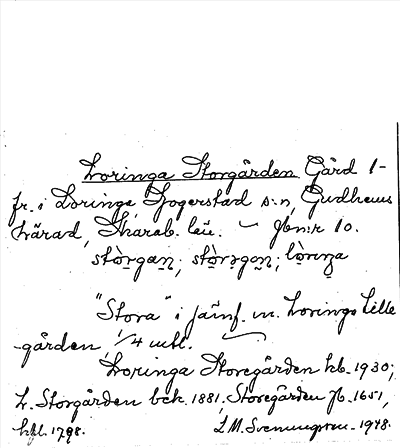 Loringa Storgården Gård 1-
fr. i Loringa, Jogerstad s:n, Gudhems
härad, Skarab. län. — Jbn:r 10.
stòrgan; stòrəgan; lòriŋa
"Stora" i jämf. m. Loringa Lille
-gården, 1/4 mtl.
Loringa Storegården kb. 1930;
L. Storgården bck. 1881, Storegården jb. 1651,
hfl. 1798. L. M. Svenungsson - 1948.